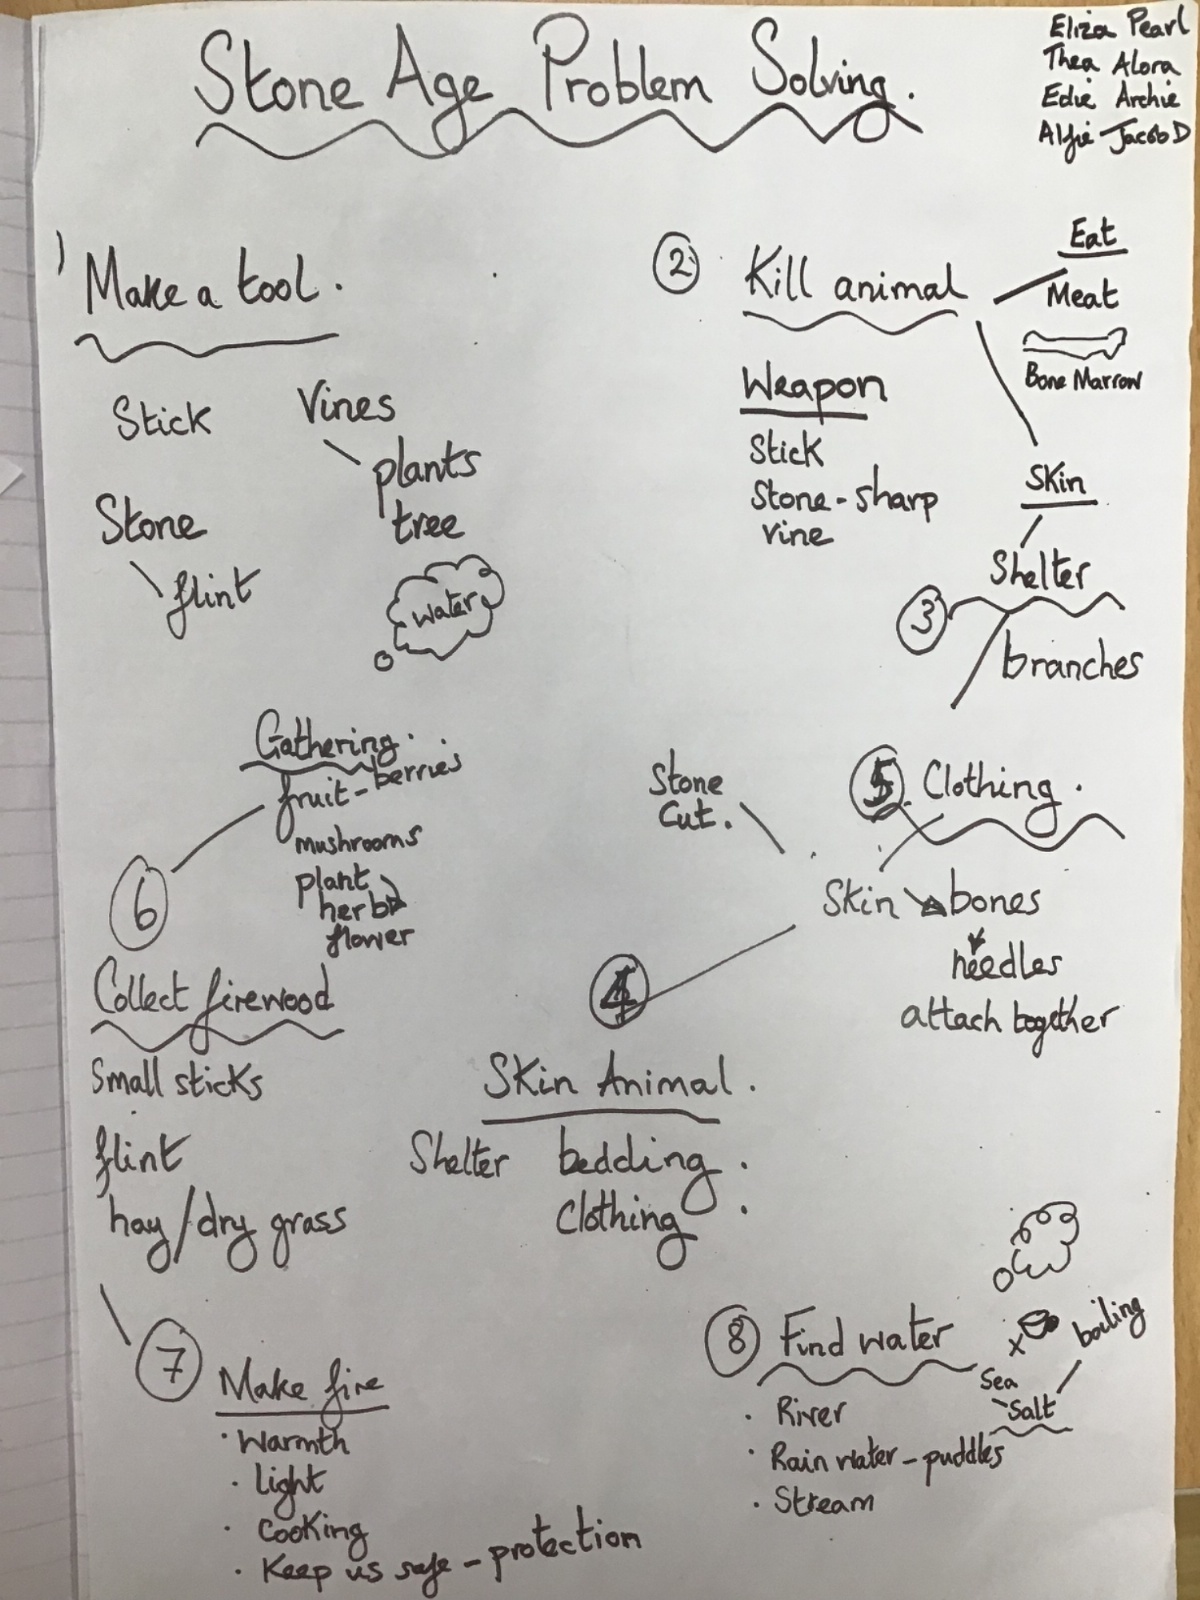 Stone Age Problem Solving.
Eliza Pearl
Thea Alora
Edie Archie
Alfie Jacob D
1) Make a tool.
Stick
Vines
plants
tree
Stone
flint
water
2 Kill animal
Eat
Meat
Bone Marrow
Weapon
Stick
Stone - sharp
vine
Skin
Shelter
3
branches
Gathering.
fruit - berries
mushrooms
plant
herbs
flower
6
Collect firewood
Small sticks
flint
hay/dry grass
Stone
Cut.
5 Clothing.
Skin bones
needles
attach together
4
Skin Animal.
Shelter bedding.
Clothing.
7 Make fire
· Warmth
· Light
· Cooking
· Keep us safe - protection
8 Find water
· River
· Rain water - puddles
· Stream
x
boiling
Sea
Salt